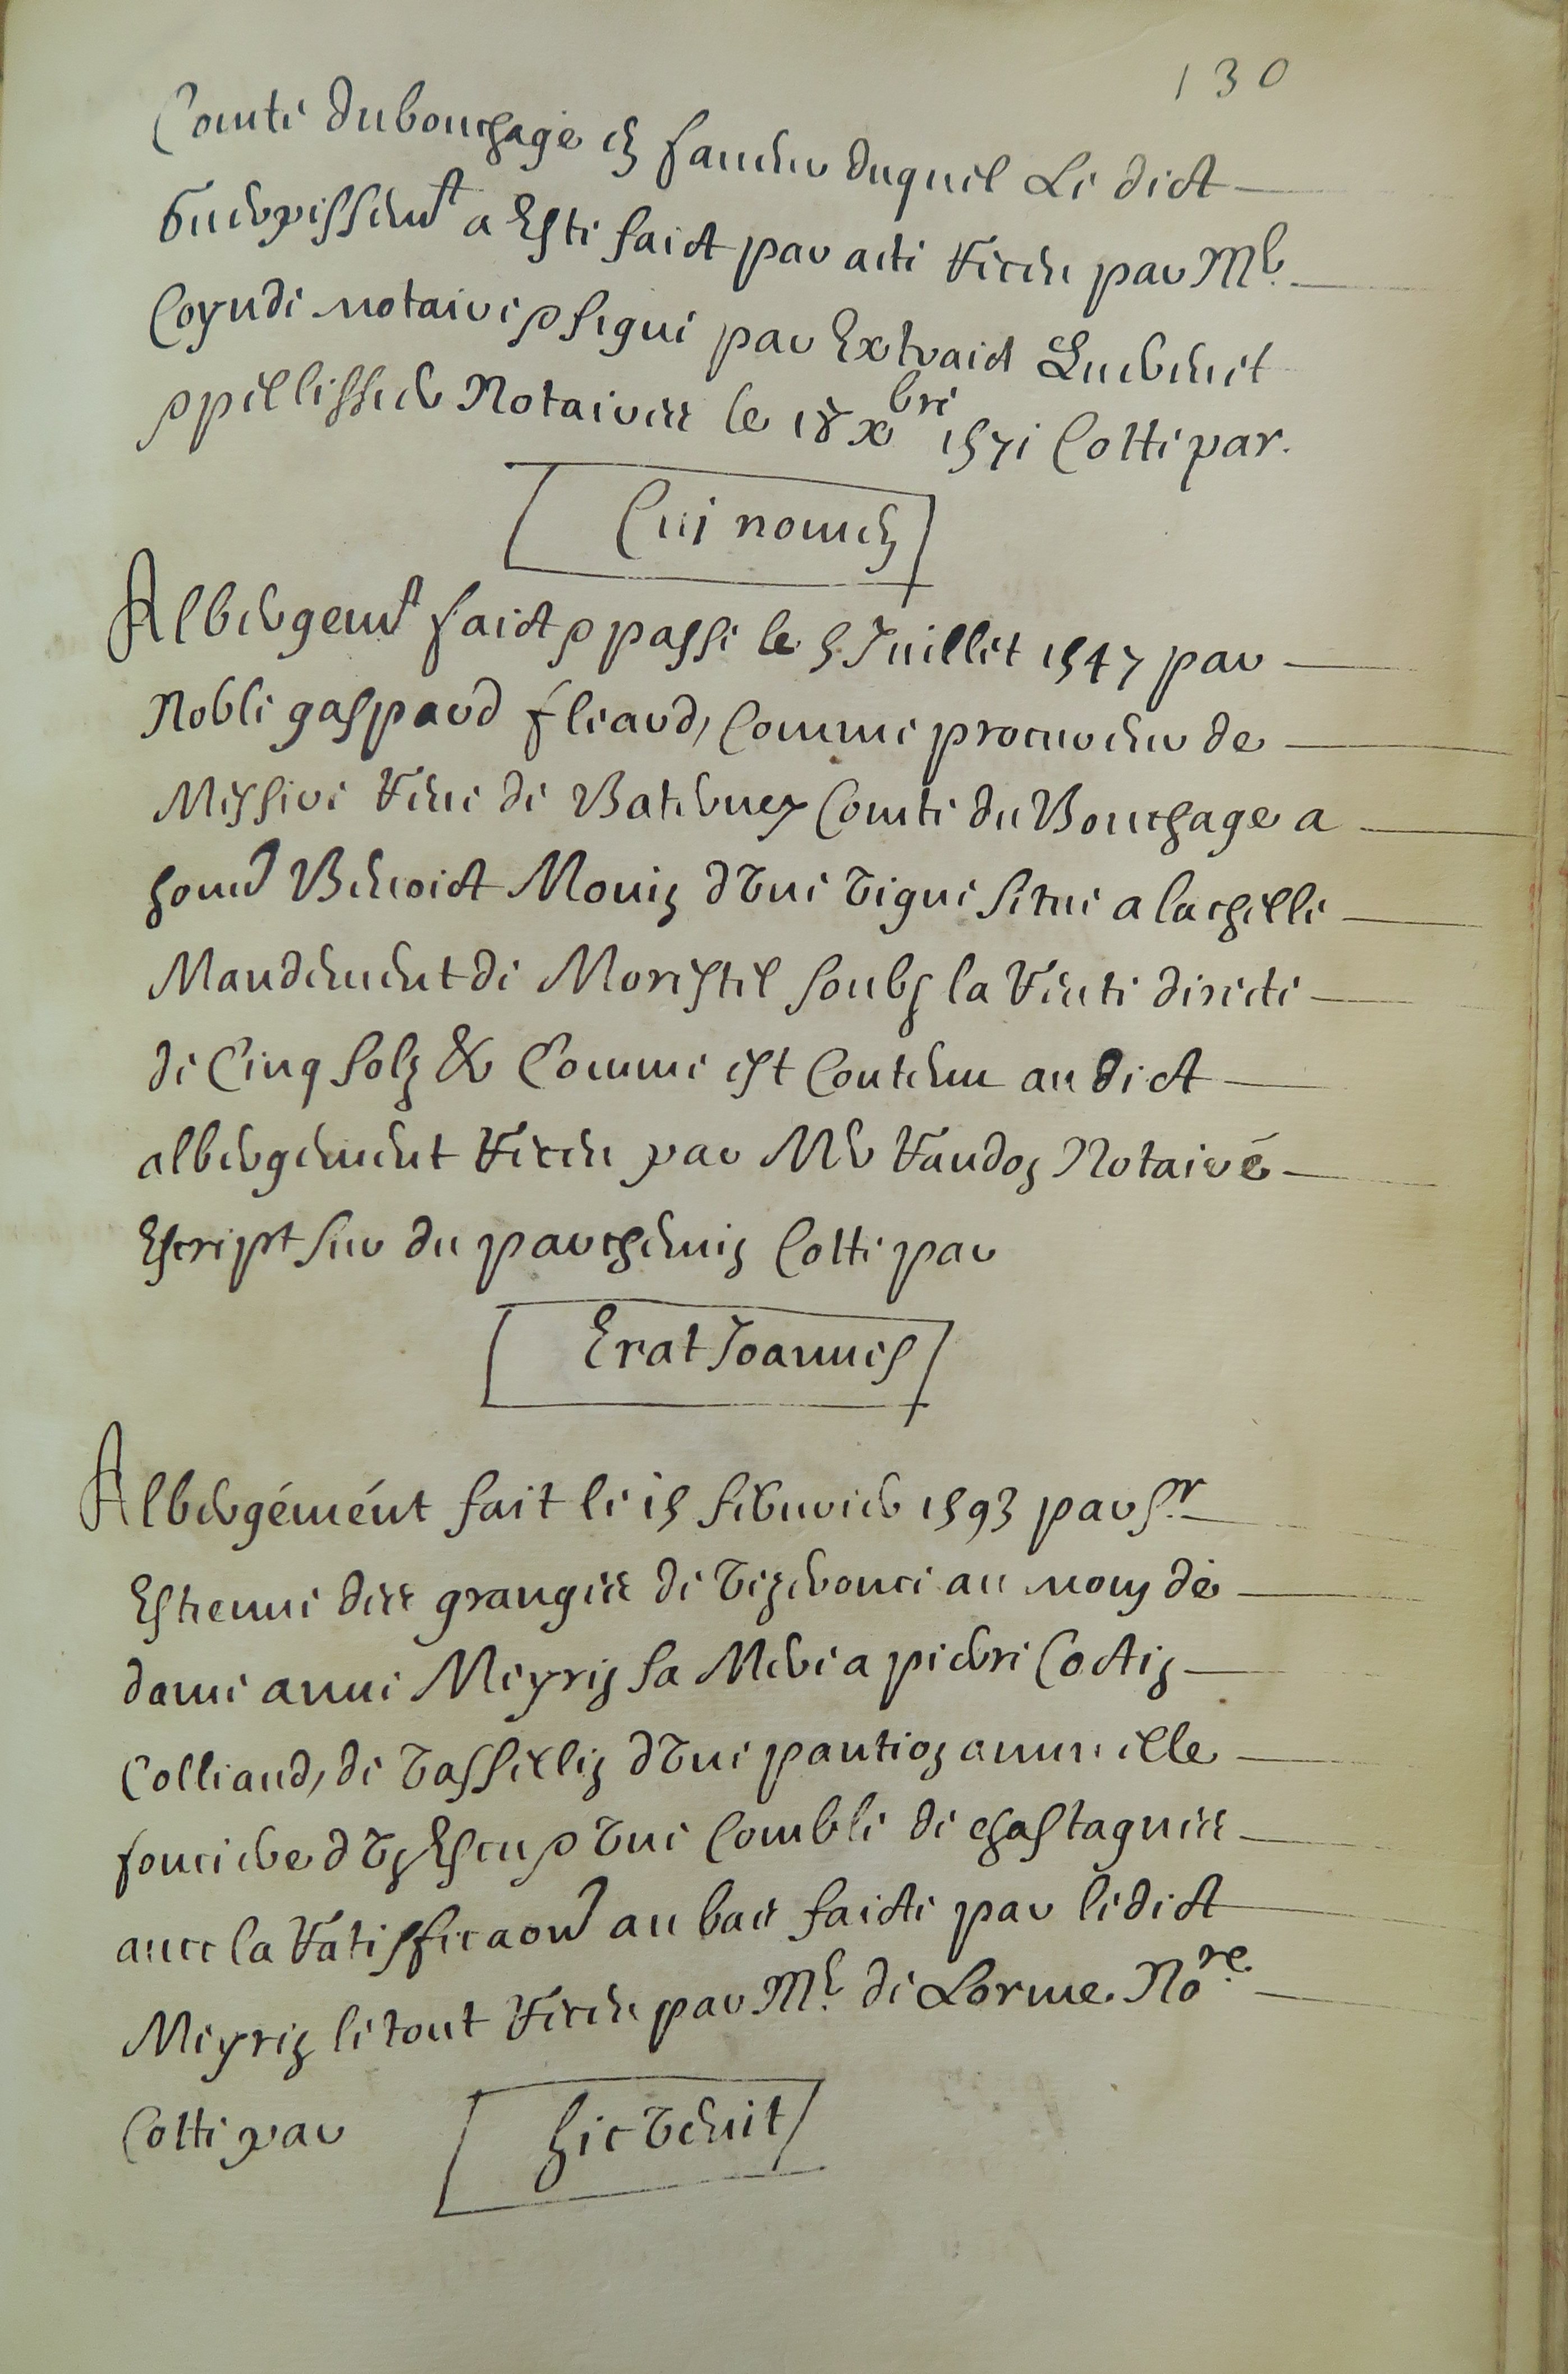 130
Comte dubouchage en faueur duquel Le dict
Guerpissemt a Esté faict par acte Receu par Mr.
Coynde notaire & signé par Extraict Quemenet
& pellissier Notaires le 18 xbre 1571 Cotté par.
Cui nomen
Albergemt faict & passé le 5 Juillet 1547 par
Noble gaspard fleard, Comme procureur de
Messire René de Baterney Comte du Bouchage a
honed Benoict Morin d'vne vigne Située a la chelle
Mandement de Morestel soubs la Rente directe
de Cinq solz & Comme est Contenu au dict
albergement Receu par Me Randon Notaire
Escript sur du parchemin Cotté par
Erat Joannes
Albergement fait le 15 feburier 1593 par Sr.
Estienne des granges de Vezeronce au nom de
dame anne Meyrin sa Mere a pierre Coctin
Colliaud, de Vassellin d'vne pantion annuelle
fonciere d'vn Escu & vne Comble de chastagnes
auec la Ratificaon au bas faicte par ledict
Meyrin le tout Receu par Me. de Lorme. Nore.
Cotté par
hic venit